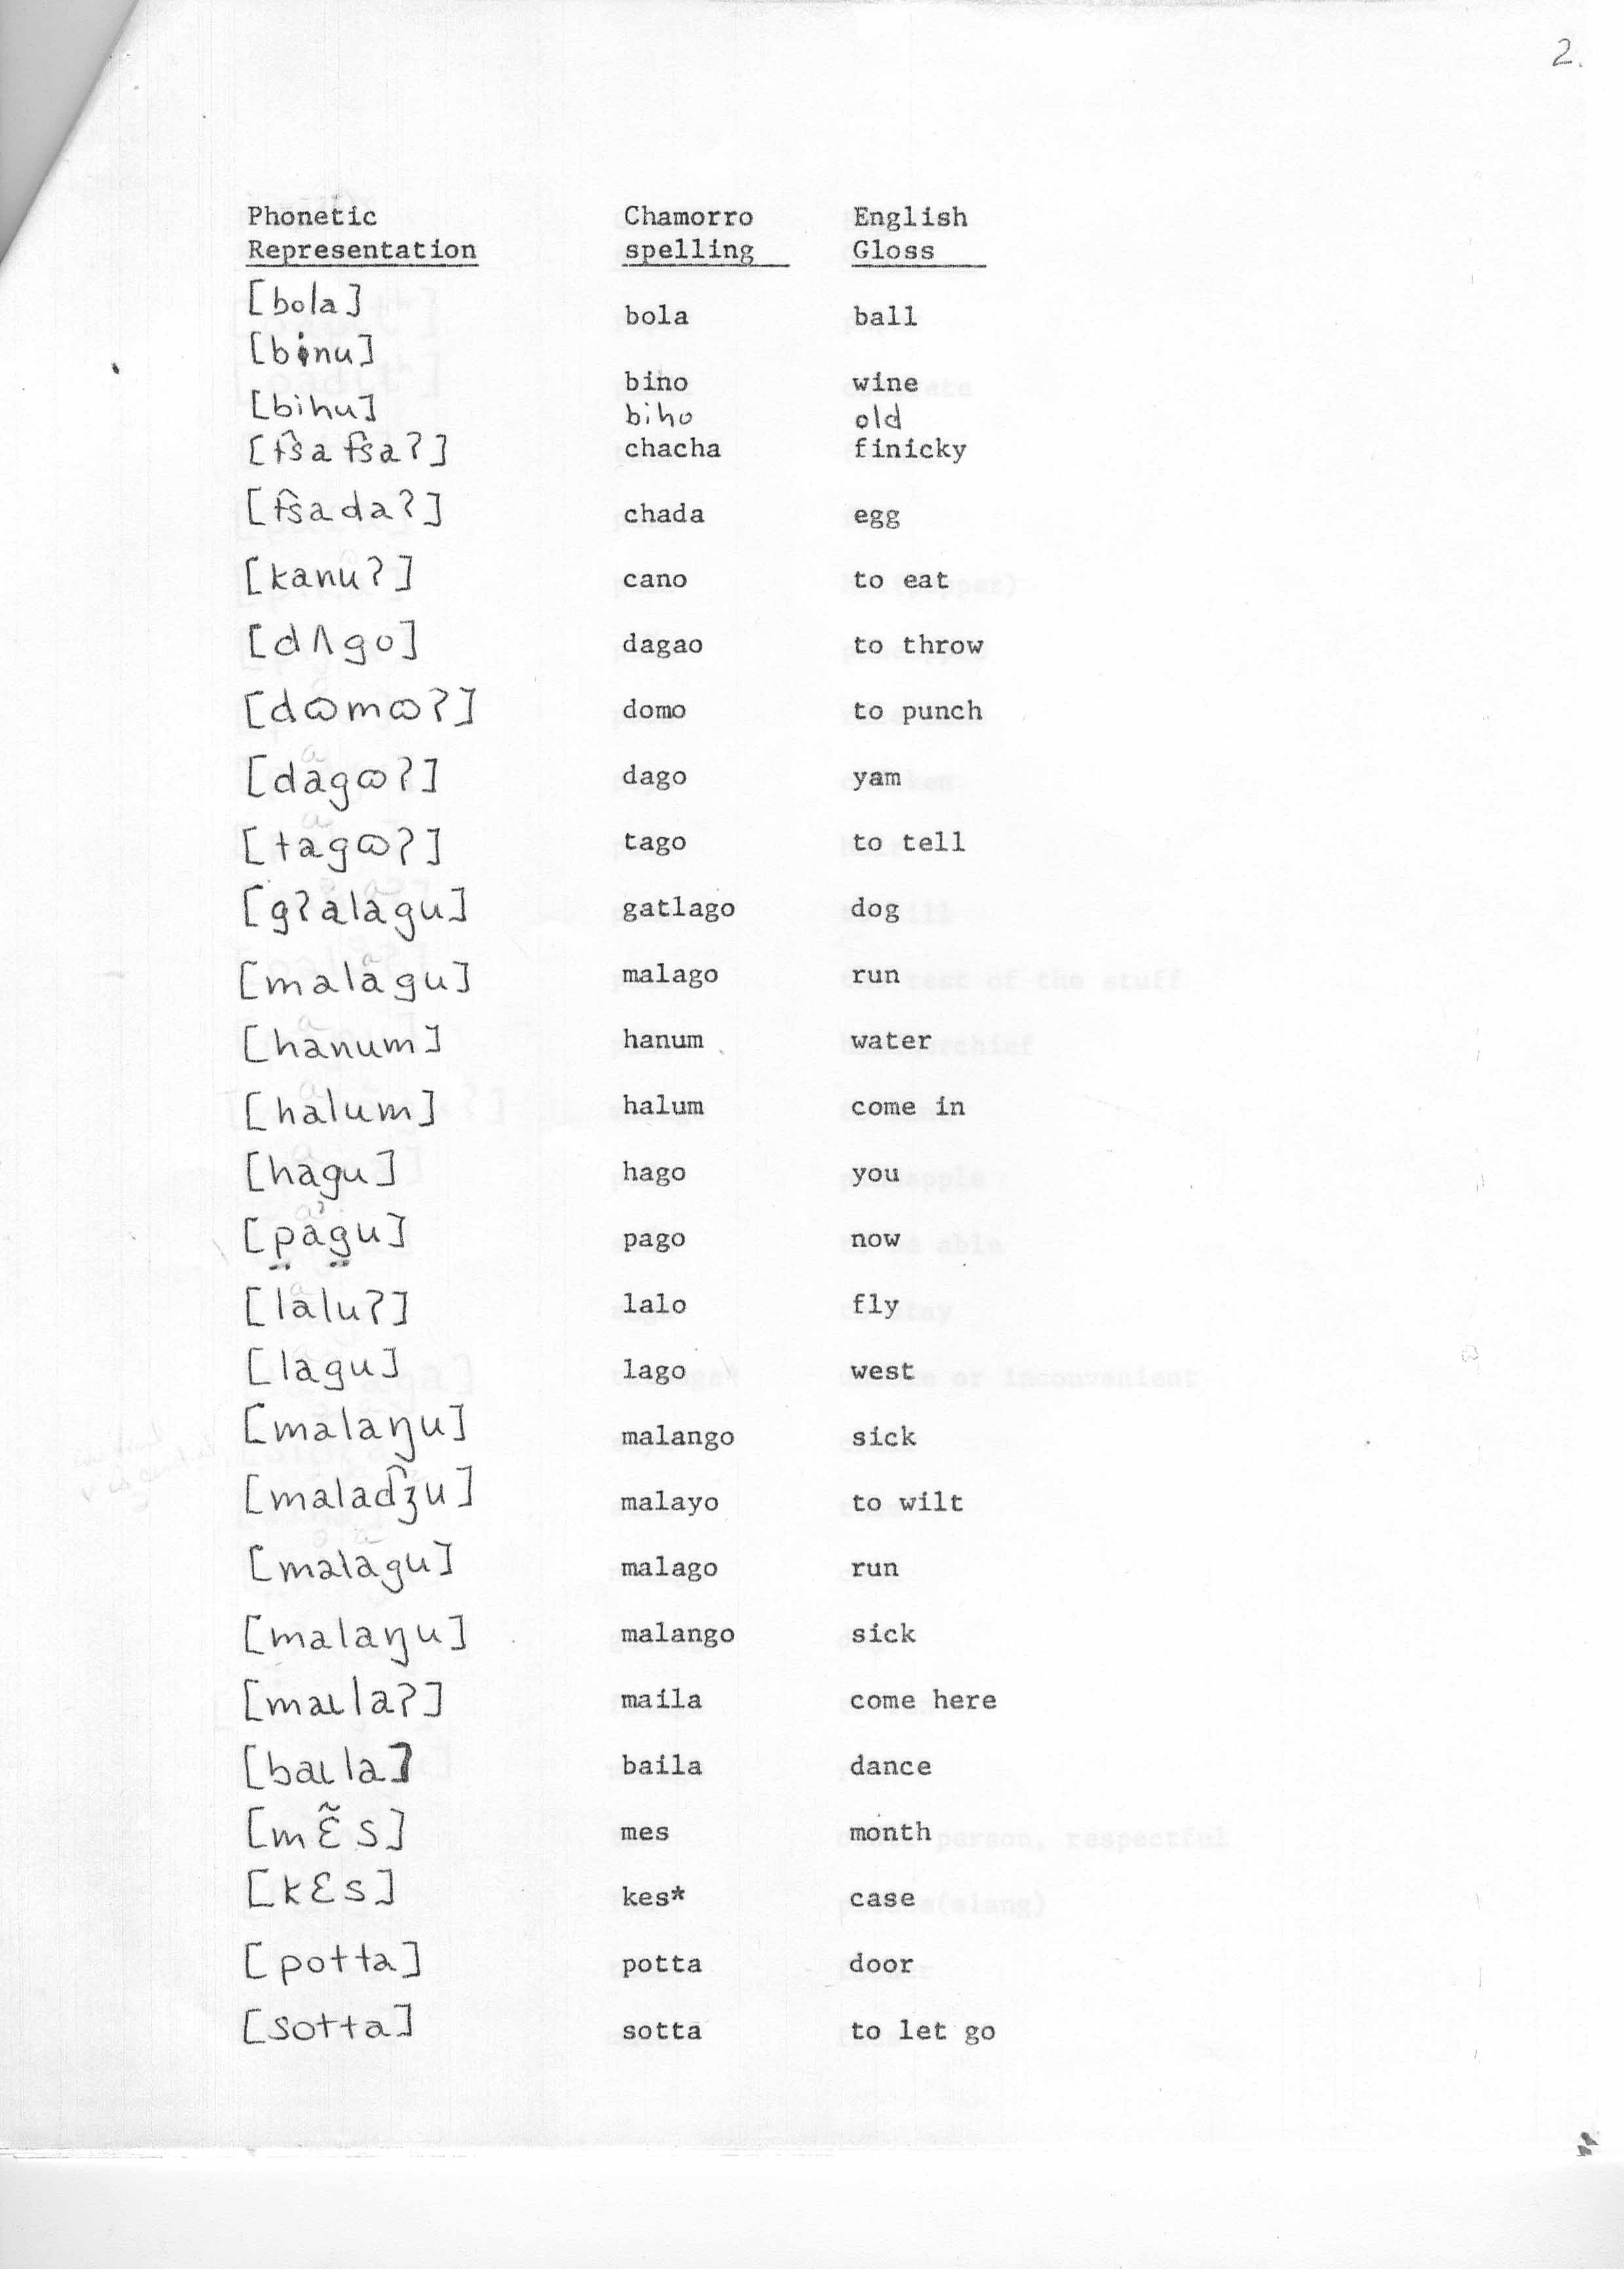 2.
Phonetic Chamorro English
Representation spelling Gloss
[bola] bola ball
[binu] bino wine
[bihu] biho old
[t͡sat͡saʔ] chacha finicky
[t͡sadaʔ] chada egg
[kanuʔ] cano to eat
[dʌgo] dagao to throw
[dɷmɷʔ] domo to punch
[dagɷʔ] dago yam
[tagɷʔ] tago to tell
[gʔalagu] gatlago dog
[malagu] malago run
[hanum] hanum water
[halum] halum come in
[hagu] hago you
[p̤ag̤u] pago now
[laluʔ] lalo fly
[lagu] lago west
[malaŋu] malango sick
[malad͡ʒu] malayo to wilt
[malagu] malago run
[malaŋu] malango sick
[maɩlaʔ] maila come here
[baɩla] baila dance
[mɛ̃s] mes month
[kɛs] kes* case
[potta] potta door
[sotta] sotta to let go